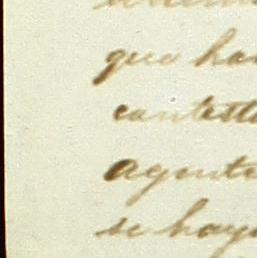 que ha
contest
agente
se haya